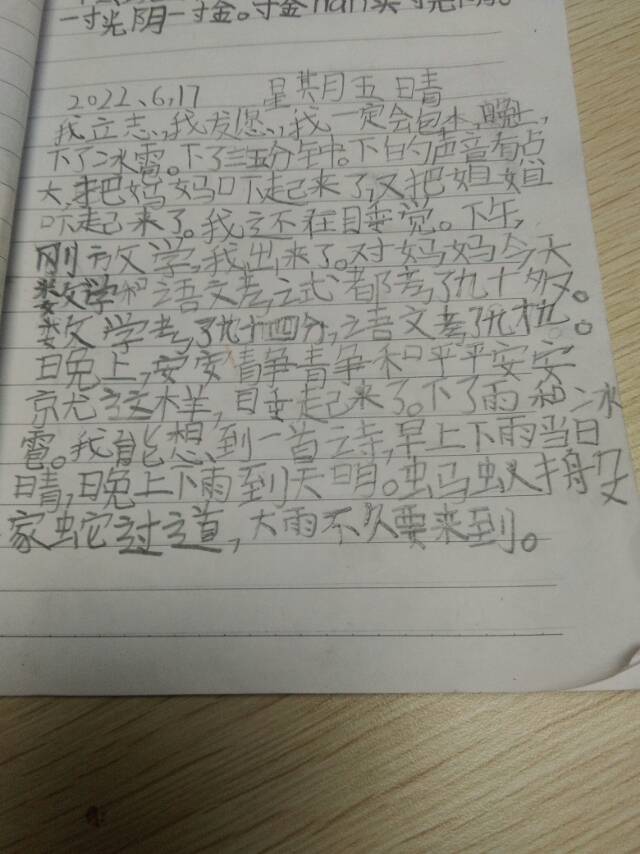 一寸光阴一寸金。寸金nan买寸光阴。
2022.6.17 星期五 晴
我立志,我发愿,我一定会包本,晚上,
下了冰雹。下了三五分钟。下白的声音有点
大,把妈妈吓起来了,又把姐姐
吓起来了。我还在目垂觉。下午,
刚放学,我出来了。对妈妈今天
数学和语文考试都考了九十多。
数学考了九十四分,语文考了九
晚上,安安静静和平平安安
京尤这样,目垂起来了。下了雨和冰
雹。我能想到一首诗,早上下雨当日
晴,晚上下雨到天明。蚂蚁搬
家蛇过道,大雨不久要来到。